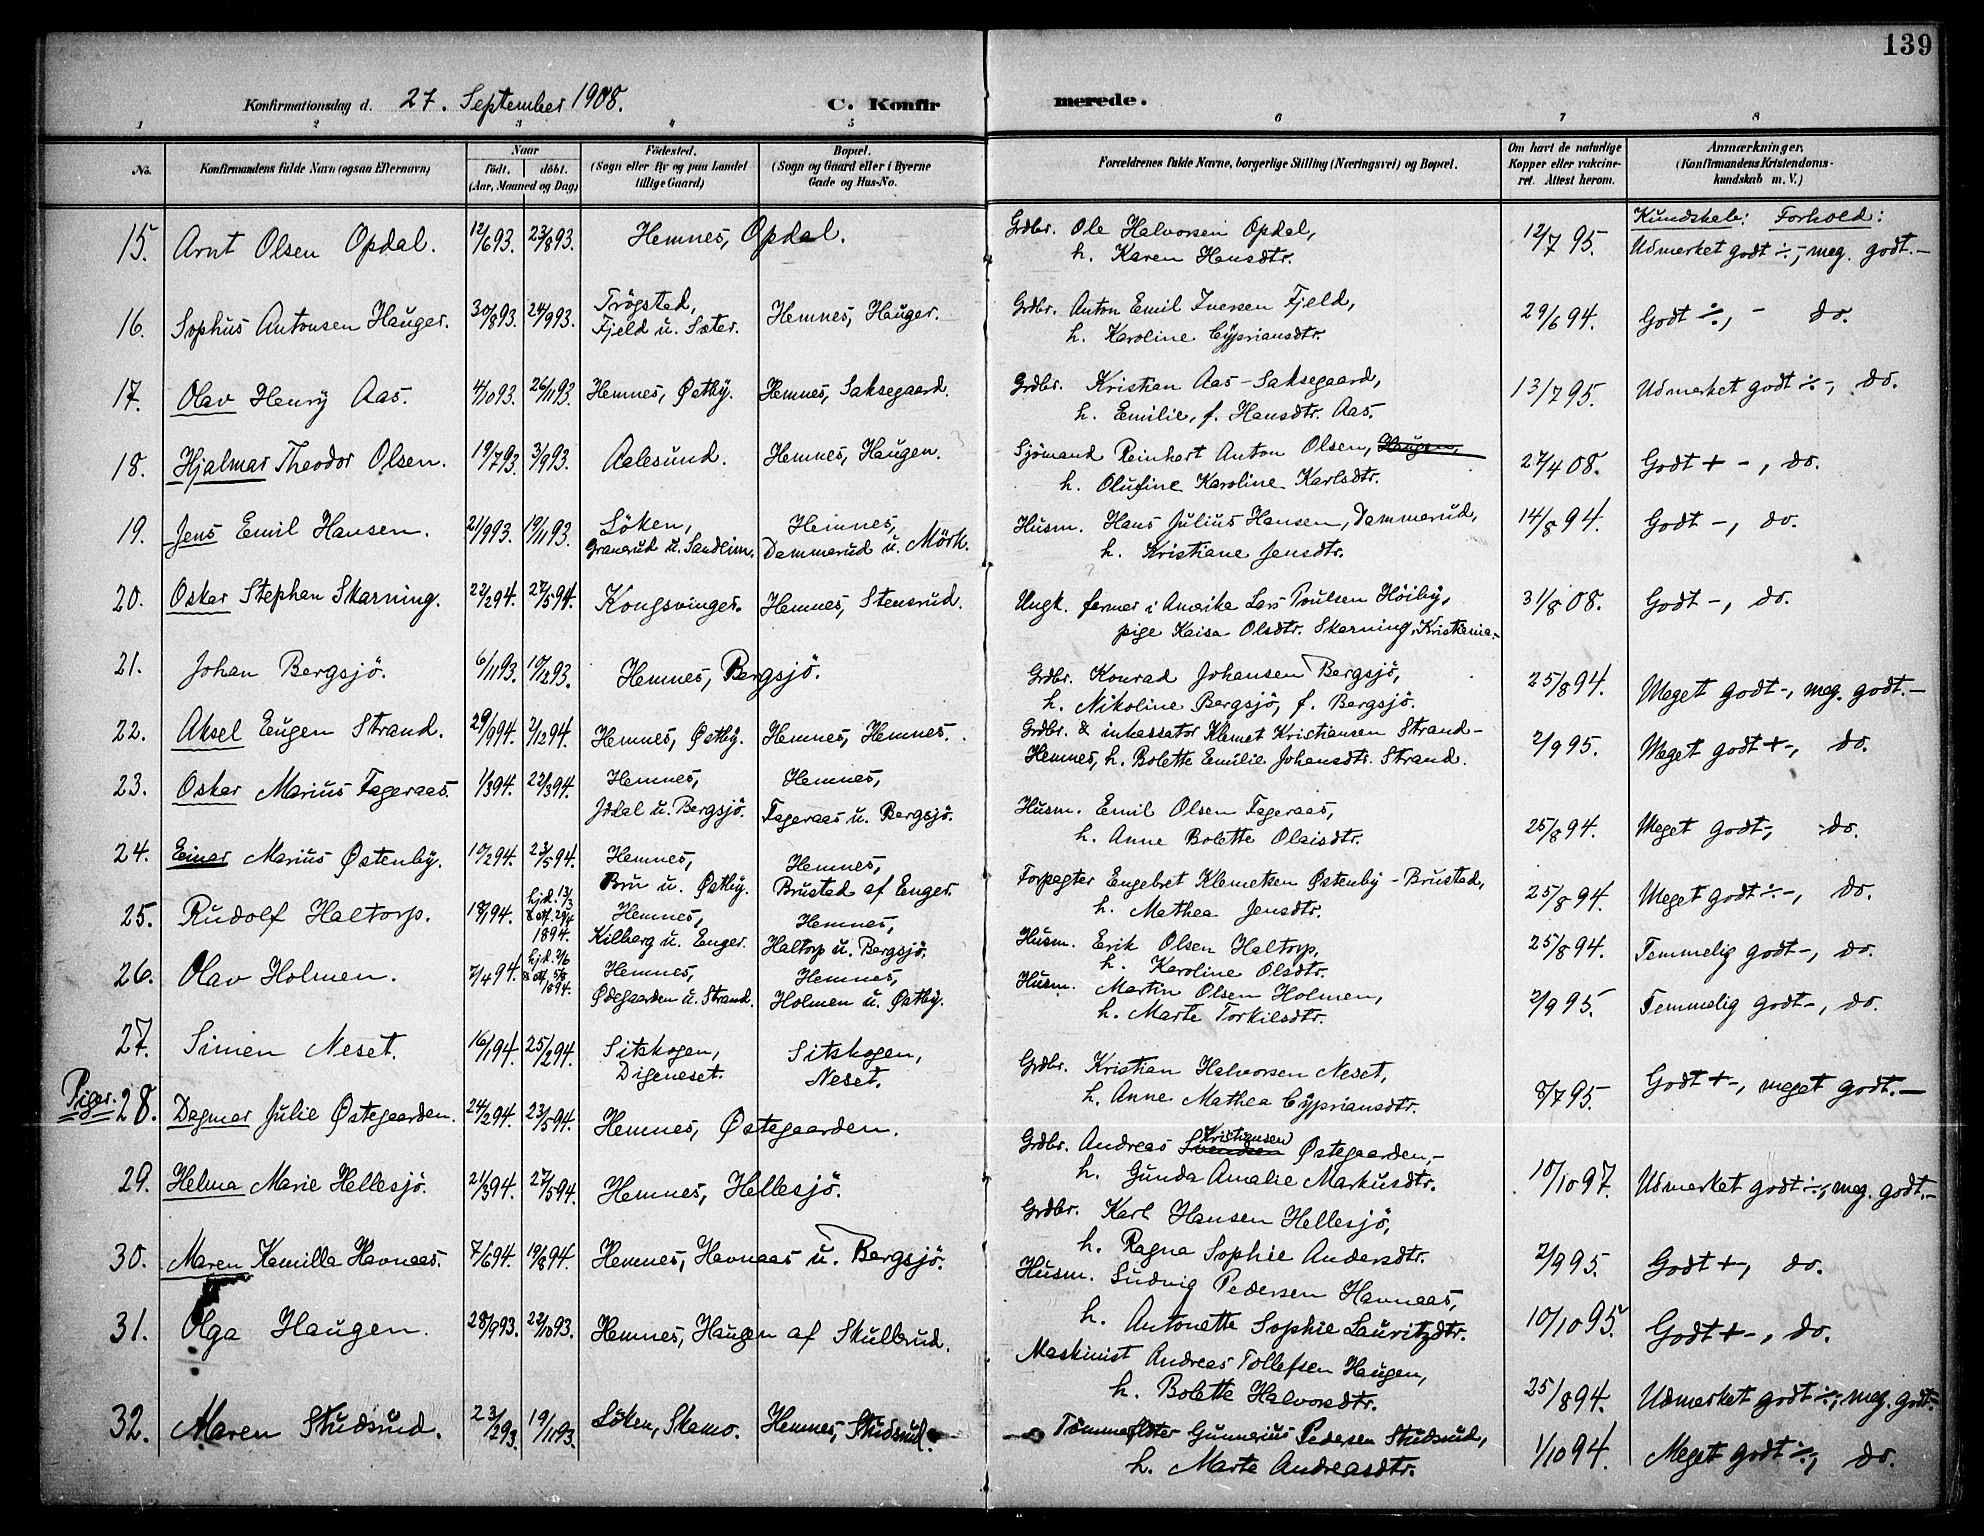 139
Konfirmationsdag d. 27. September 1908.
C. Konfirmerede.
1 2 3 4 5 6 7 8
No. Konfirmandens fulde Navn (ogsaa Efternavn)
Naar født, døbt. (Aar, Maaned og Dag)
Fødested. (Sogn eller By og paa Landet tillige Gaard)
Bopæl. (Sogn og Gaard eller i Byerne Gade og Hus-No.
Forældrenes fulde Navne, borgerlige Stilling (Næringsvei) og Bopæl.
Om havt de naturlige Kopper eller vakcineret. Attest herom.
Anmærkninger. (Konfirmandens Kristendomskundskab m. V.)
Kundskab: Forhold:
15. Arnt Olsen Opdal. 12/6 93. 23/8 93. Hemnes, Opdal. Grdbr. Ole Halvorsen Opdal, 12/7 95. Udmerket godt ÷-, meg. godt.-
h. Karen Hansdtr.
16. Sophus Antonsen Hauger. 30/8 93. 24/9 93. Trögsted, Hemnes, Hauger. Grdbr. Anton Emil Iversen Fjeld, 29/6 94. Godt ÷, - do.
Fjeld u. Sæter. h. Karoline Cÿpriansdtr.
17. Olav Henrÿ Aas. 4/10 93. 26/11 93. Hemnes, Østbÿ. Hemnes, Saksegaard. Grdbr. Kristian Aas - Saksegaard, 13/7 95. Udmerket godt ÷-, do.
h. Emilie, f. Hansdtr. Aas.
18. Hjalmar Theodor Olsen. 19/7 93. 3/9 93. Aalesund. Hemnes, Haugen. Sjömand Reinhart Anton Olsen, Haugen, 27/4 08. Godt + -, do.
h. Olufine Karoline Karlsdtr.
19. Jens Emil Hansen. 21/9 93. 19/11 93. Löken, Hemnes, Husm. Hans Julius Hansen, Dammerud, 14/8 94. Godt -, do.
Granerud u. Sandlim. Dammerud u. Mörk. h. Kristiane Jensdtr.
20. Oskar Stephan Skarning. 22/2 94. 27/5 94. Kongsvinger. Hemnes, Stensrud. Ungk. farmer i Amerika Lars Poulsen Höiby, 31/8 08. Godt -, do.
pige Kaisa Olsdtr. Skarning, Kristiania-
21. Johan Bergsjö. 6/11 93. 10/12 93. Hemnes, Bergsjö. Grdbr. Konrad Johansen Bergsjö, 25/8 94. Meget godt -, meg. godt.-
h. Nikoline Bergsjö, f. Bergsjö.
22. Aksel Eugen Strand. 29/9 94. 2/12 94. Hemnes, Østbÿ. Hemnes, Hemnes. Grdbr. & inkassator Klemet Kristiansen Strand- 2/9 95. Meget godt +-, do.
Hemnes, h. Bolette Emilie Johansdtr. Strand.
23. Oskar Marius Fageraas. 1/3 94. 22/3 94. Hemnes, Hemnes, Husm. Emil Olsen Fageraas, 25/8 94. Meget godt -, do.
Jödal u. Bergsjö. Fageraas u. Bergsjö. h. Anne Bolette Olaisdtr.
24. Einar Marius Østenby. 10/2 94. 23/5 94. Hemnes, Hemnes, Forpagter Engebret Klemetsen Østenby - Brustad, 25/8 94. Meget godt ÷-, do.
Bru u. Østbÿ. Brustad af Enger. h. Mathea Jensdtr.
25. Rudolf Haltorp. hj.d. 13/3 & off. 29/4 1894. Hemnes, Hemnes, Husm. Erik Olsen Haltorp, 25/8 94. Temmelig godt -, do.
Kilberg u. Enger. Haltorp u. Bergsjö. h. Karoline Olsdtr.
26. Olav Holmen. 7/4 94. 1894. Hemnes, Hemnes, Husm. Martin Olsen Holmen, 2/9 95. Temmelig godt -, do.
Ødegaarden u. Strand. Holmen u. Østbÿ. h. Marte Torkilsdtr.
27. Simen Neset. 16/1 94. 25/2 94. Sitskogen, Sitskogen, Grdbr. Kristian Halvorsen Neset, 8/7 95. Godt +-, meget godt.-
Digeneset. Neset. h. Anne Mathea Cÿpriansdtr.
Piger. 28. Dagmar Julie Østegaarden. 24/2 94. 23/5 94. Hemnes, Østegaarden. Grdbr. Andreas Svendsen Kristiansen Østegaarden,- 10/10 97. Udmerket godt ÷-, meg. godt.-
h. Gunda Amalie Markusdtr.
29. Helma Marie Hellesjö. 21/3 94. 27/5 94. Hemnes, Hellesjö. Grdbr. Karl Hansen Hellesjö, 2/9 95. Godt +-, do.
h. Ragna Sophie Andersdtr.
30. Maren Kamilla Havnaas. 7/6 94. 19/8 94. Hemnes, Havnaas u. Bergsjö. Husm. Ludvig Pedersen Havnaas, 10/10 95. Godt +-, do.
h. Antonette Sophie Lauritzdtr.
31. Olga Haugen. 28/9 93. 22/10 93. Hemnes, Haugen af Skullerud. Maskinist Andreas Tollefsen Haugen, 25/8 94. Udmerket godt ÷-, meg. godt.-
h. Bolette Halvorsdtr.
32. Maren Studsrud. 23/2 93. 19/11 93. Löken, Skamo. Hemnes, Studsrud. Tömmerfløter Gunnerius Pedersen Studsrud, 1/10 94. Meget godt ÷, do.
h. Marte Andreasdtr.